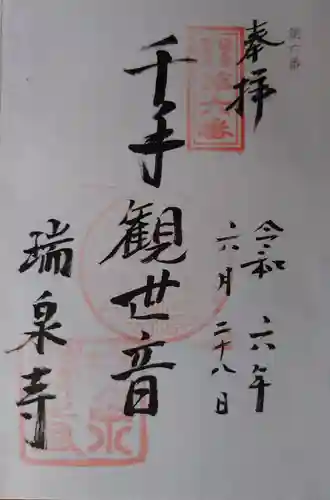 第六番
奉拝
第六番
令和六年
六月二十八日
千手観世音
瑞泉寺